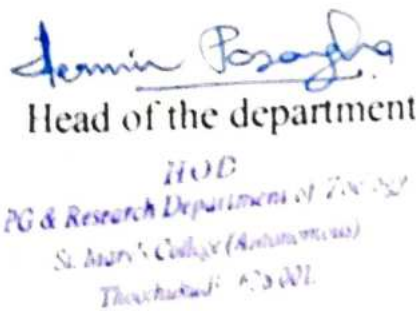 Head of the department
HOD
PG & Research Department of Zoology
St. Mary's College (Autonomous)
Thoothukudi